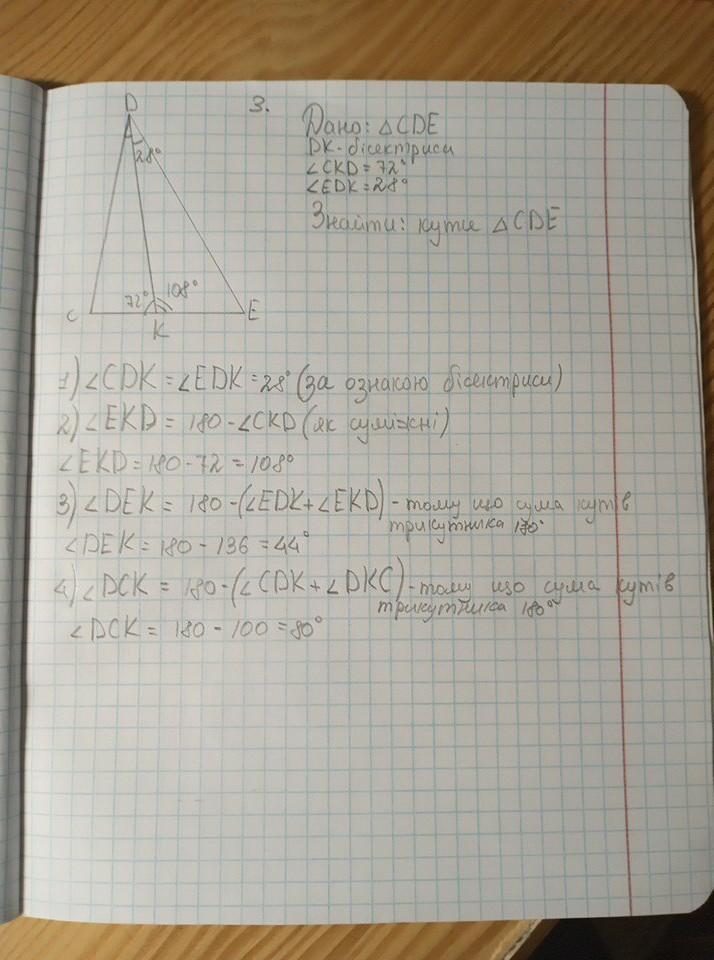 3.
D
28°
72°
108°
C
K
E
Дано: △CDE
DK-бісектриси
∠CKD = 72°
∠EDK = 28°
Знайти: кути △CDE
1) ∠CDK = ∠EDK = 28° (за ознакою бісектриси)
2) ∠EKD = 180 - ∠CKD (як суміжні)
∠EKD = 180 - 72 = 108°
3) ∠DEK = 180 - (∠EDK + ∠EKD) - тому що сума кутів
трикутника
∠DEK = 180 - 136 = 44°
4) ∠DCK = 180 - (∠CDK + ∠DKC) - тому що сума кутів
трикутника 180°
∠DCK = 180 - 100 = 80°